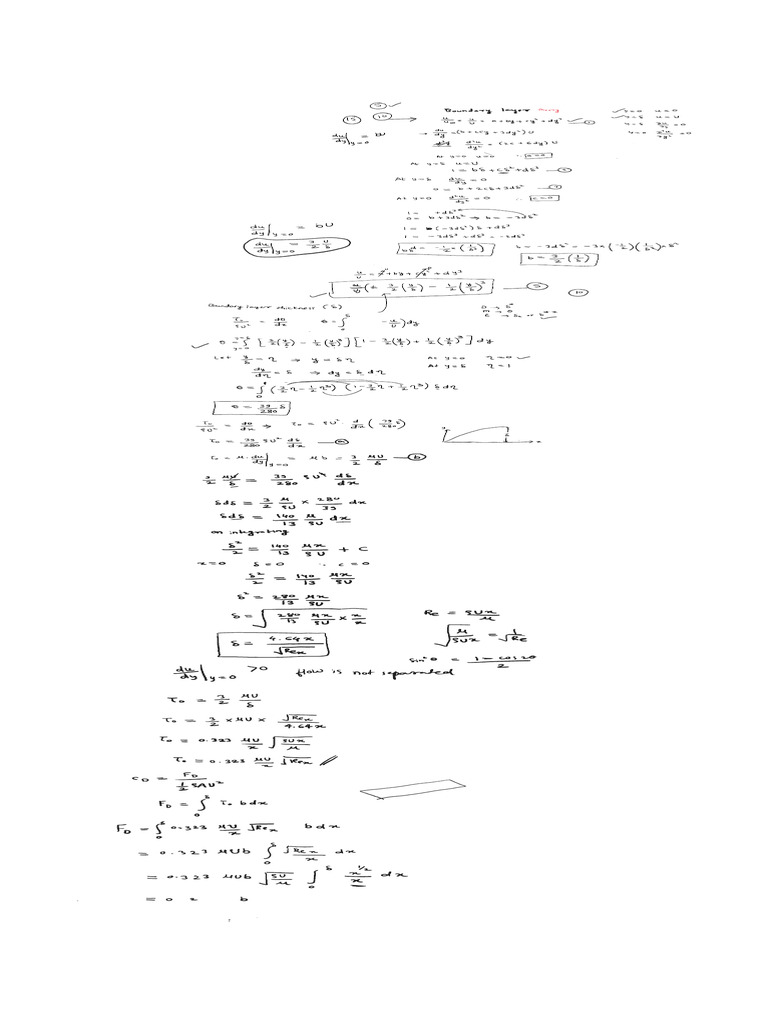 5 ✓
Boundary layer
15 10 → u/U∞ = u/U = a+by+cy²+dy³ ✓ ①
✓ y=0 u=0
✓ y=δ u=U
y=δ ∂u/∂y = 0
y=0 ∂²u/∂y² = 0
du/dy|y=0 = bU → du/dy = (b+2cy+3dy²)U
d²u/dy² = (2c+6dy)U
At y=0 u=0 ∴ a=0
At y=δ u=U
1 = bδ+cδ²+dδ³
At y=δ du/dy = 0
0 = b+2cδ+3dδ²
At y=0 d²u/dy² = 0 ∴ c=0
0 = b+3dδ² ⇒ b = -3dδ²
1 = (-3dδ²)δ+dδ³
1 = -3dδ³+dδ³ = -2dδ³
du/dy|y=0 = bU
du/dy|y=0 = 3/2 U/δ
b = 3/2 (1/δ)
u/U = a+by+cy²+dy³
Boundary layer thickness (δ)
τ₀/ρU² = dθ/dx
Let y/δ = η ⇒ y = δη At y=0 η=0 ✓
dy/dη = δ ⇒ dy = δ dη At y=δ η=1
θ = ∫ (3/2 η - 1/2 η³) (1 - 3/2 η + 1/2 η³) δ dη
θ = 39/280 δ
τ₀/ρU² = dθ/dx ⇒ τ₀ = ρU² d/dx (39/280 δ)
τ₀ = 39/280 ρU² dδ/dx — ⓐ
τ₀ = μ·du/dy|y=0 = μb = 3/2 μU/δ — ⓑ
3/2 μU/δ = 39/280 ρU² dδ/dx
δdδ = 3/2 μ/ρU × 280/39 dx
δdδ = 140/13 μ/ρU dx
on integrating
δ²/2 = 140/13 μx/ρU + C
x=0 δ=0 ∴ C=0
δ²/2 = 140/13 μx/ρU
δ² = 280/13 μx/ρU
δ = √(280/13 μx/ρU × x/x) Re = ρUx/μ
√(μ/ρUx) = 1/√Re
δ = 4.64x/√Rex
sin²θ = (1-cos2θ)/2
du/dy|y=0 >0 flow is not separated
τ₀ = 3/2 μU/δ
τ₀ = 3/2 × μU × √Rex/4.64x
τ₀ = 0.323 μU/x √(ρUx/μ)
τ₀ = 0.323 μU/x √Rex
CD = FD/(½ρAU²)
FD = ∫₀^δ τ₀ b dx
FD = ∫₀^δ 0.323 μU/x √Rex b dx
= 0.323 μUb ∫₀^δ √Rex/x dx
= 0.323 μUb √(ρU/μ) ∫₀^δ x^(1/2)/x dx
= 0 b